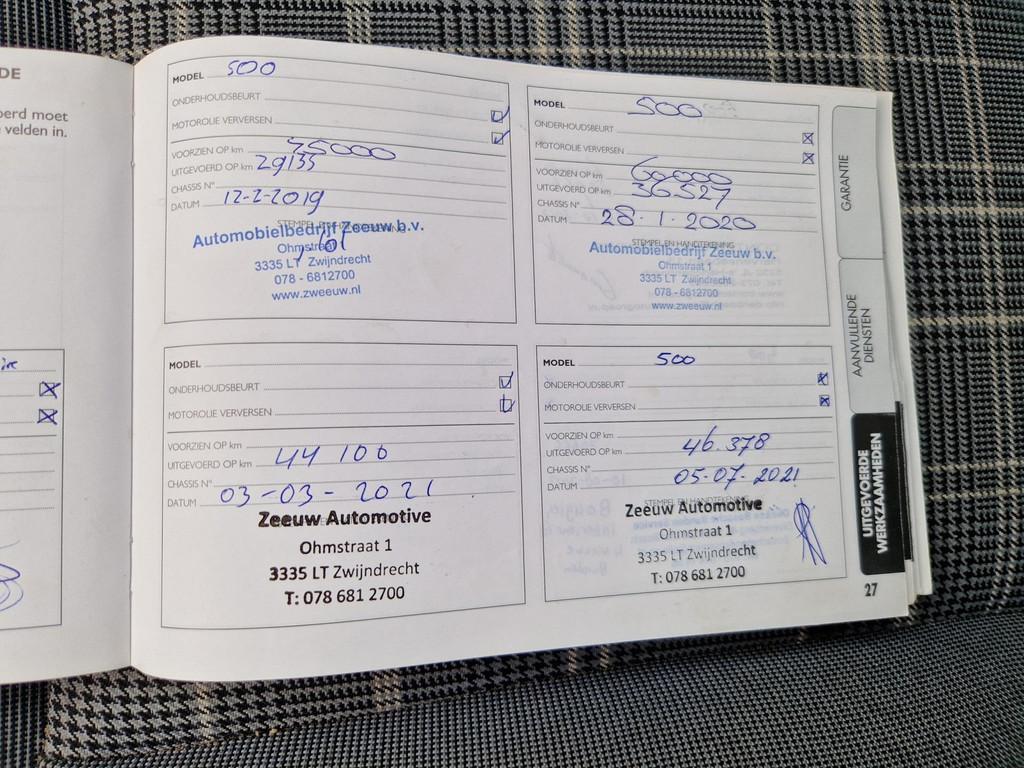 DE
erd moet
velden in.
MODEL 500
ONDERHOUDSBEURT
MOTOROLIE VERVERSEN
VOORZIEN OP km 45000
UITGEVOERD OP km 29135
CHASSIS N°
DATUM 12-2-2019
STEMPEL EN HANDTEKENING
Automobielbedrijf Zeeuw b.v.
Ohmstraat
3335 LT Zwijndrecht
078 - 6812700
www.zweeuw.nl
MODEL 500
ONDERHOUDSBEURT
MOTOROLIE VERVERSEN
VOORZIEN OP km 60000
UITGEVOERD OP km 36.527
CHASSIS N°
DATUM 28-1-2020
STEMPEL EN HANDTEKENING
Automobielbedrijf Zeeuw b.v.
Ohmstraat 1
3335 LT Zwijndrecht
078 - 6812700
www.zweeuw.nl
MODEL
ONDERHOUDSBEURT
MOTOROLIE VERVERSEN
VOORZIEN OP km
UITGEVOERD OP km 44 100
CHASSIS N°
DATUM 03-03-2021
Zeeuw Automotive
Ohmstraat 1
3335 LT Zwijndrecht
T: 078 681 2700
MODEL 500
ONDERHOUDSBEURT
MOTOROLIE VERVERSEN
VOORZIEN OP km
UITGEVOERD OP km 46.378
CHASSIS N°
DATUM 05-07-2021
STEMPEL EN HANDTEKENING
Zeeuw Automotive
Ohmstraat 1
3335 LT Zwijndrecht
T: 078 681 2700
GARANTIE
AANVULLENDE
DIENSTEN
UITGEVOERDE
WERKZAAMHEDEN
27